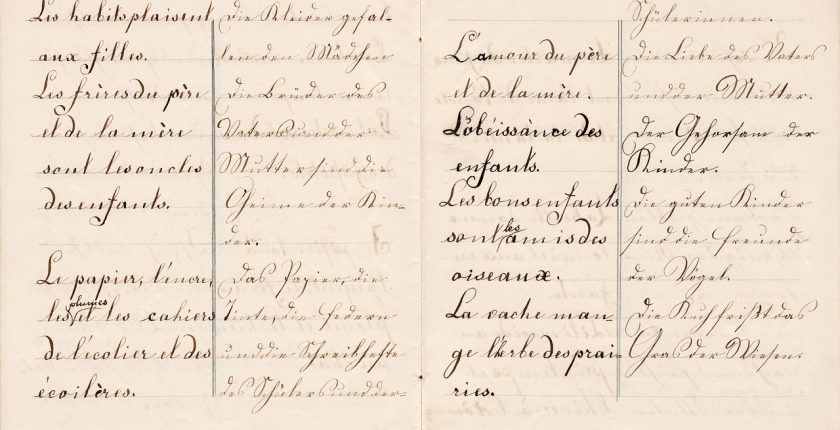 Les habits plaisent
aux filles.
Les frères du père
et de la mère
sont les oncles
des enfants.
Le papier, l'encre,
les plumes et les cahiers
de l'écolier et des
écoilères.
Die Kleider gefal-
len den Mädchen
Die Brüder des
Vaters und der
Mutter sind die
Oheime der Kin-
der.
Das Papier, die
Tinte, die Federn
und die Schreibhefte
des Schülers und der-
L'amour du père
et de la mère.
L'obéissance des
enfants.
Les bons enfants
sont les amis des
oiseaux.
La cache man-
ge l'herbe des prai-
ries.
Schülerinnen.
Die Liebe des Vaters
und der Mutter.
Der Gehorsam der
Kinder.
Die guten Kinder
sind die Freunde
der Vögel.
Die Kuh frißt das
Gras der Wiesen.